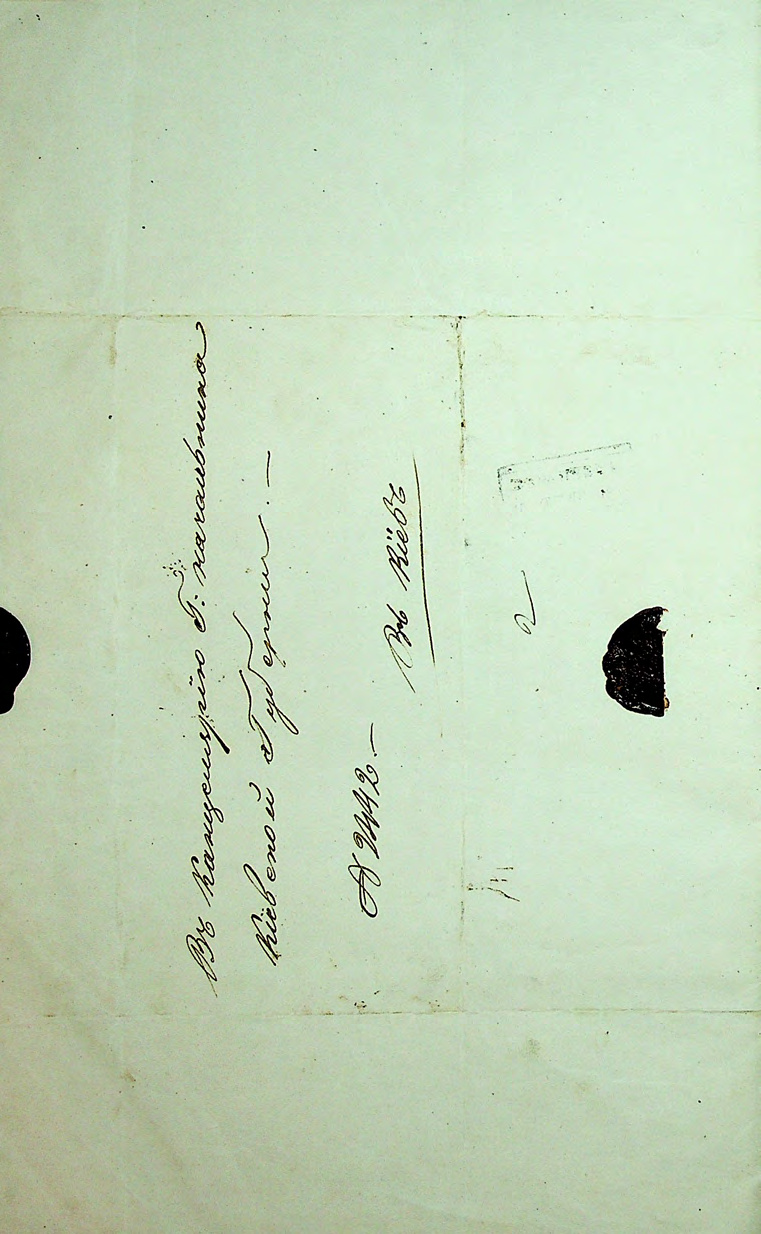 Въ Канцелярію Г. Начальника
Кіевской Губерніи. —
№ 2442. —
Въ Кіевѣ